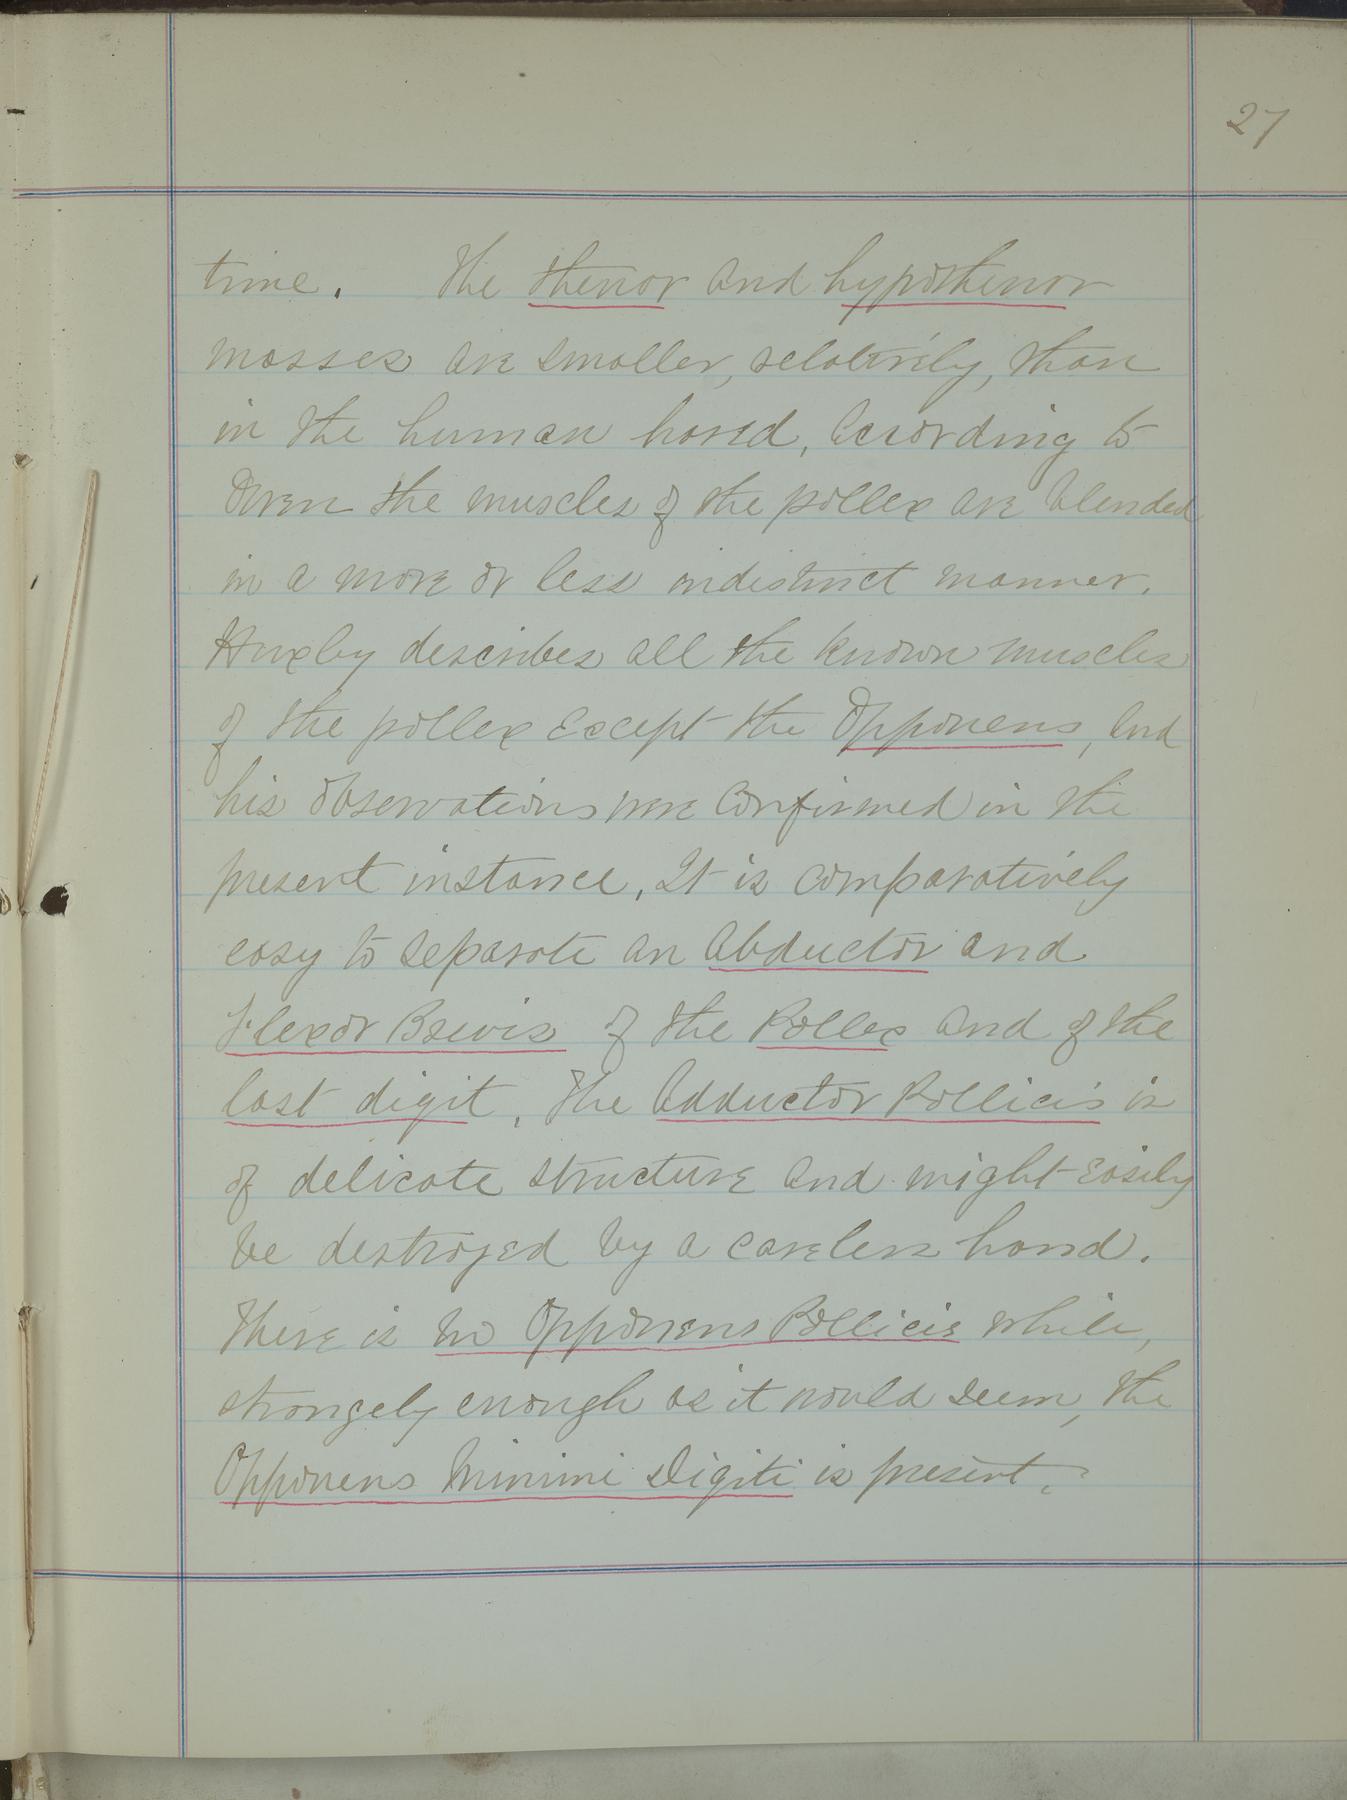 27
time. The thenor and hypothenor
masses are smaller, relatively, than
in the human hand, according to
Owen the muscles of the pollex are blended
in a more or less indistinct manner.
Huxley describes all the known muscles
of the pollex except the Opponens, and
his observations were confirmed in the
present instance, It is comparatively
easy to separate an abductor and
Flexor Brevis of the Pollex and of the
last digit. The Adductor Pollicis is
of delicate structure and might easily
be destroyed by a careless hand.
There is no Opponens Pollicis while,
strangely enough as it would seem, the
Opponens Minimi Digiti is present.